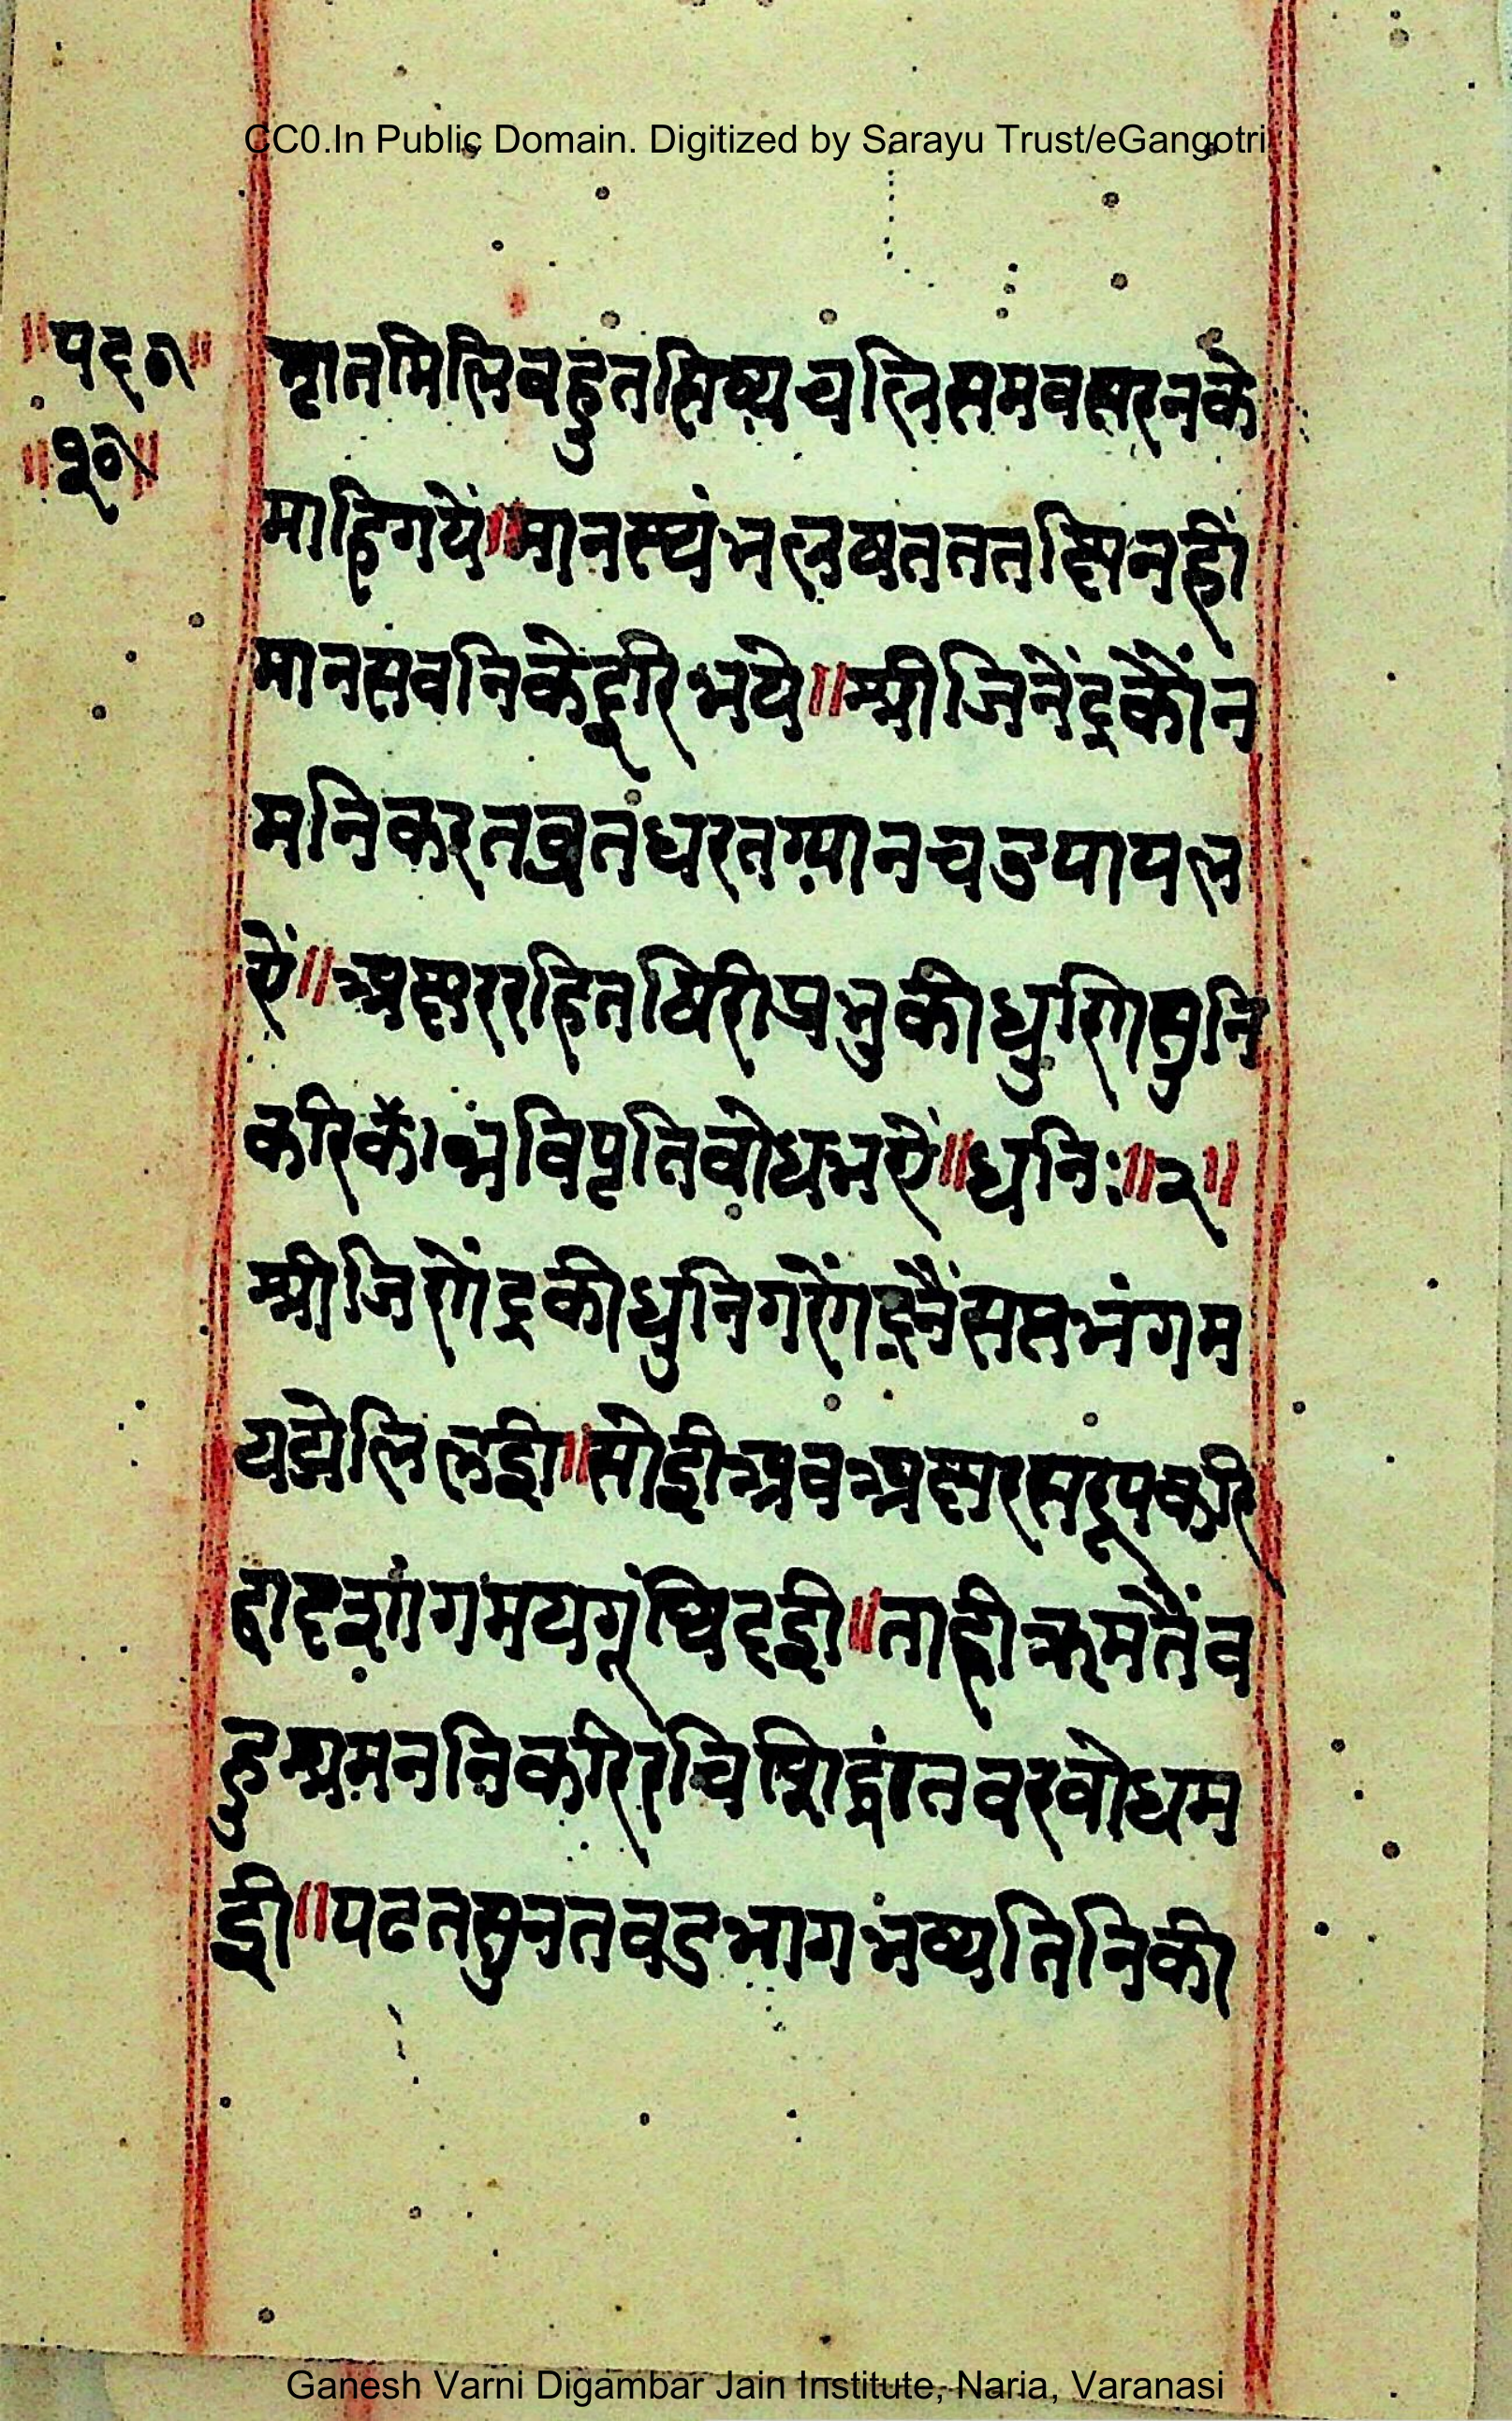 CC0.In Public Domain. Digitized by Sarayu Trust/eGangotri
॥पद॥
॥१०॥
भ्रात मिलि बहुत सिष्य चलि समवसरन के
माहि गयें॥मानस्थंभ लषत ततछिनहीं
मान सवनि के दूरि भये॥श्री जिनेंद्र कौं न
मनि करत व्रत धरत ग्यान चउ पाय ल
ऐं॥अछर रहित षिरी प्रभु की धुणि सुनि
करि कैं भवि प्रतिवोध भऐं॥धनिः॥२॥
श्री जिणेंद्र की धुनि गणेंद्र नैं सप्त भंग म
य झेलि लई॥सोई अव अछर सरूप करि
द्वादशांग मय गूंथि दई॥ताही क्रम तैं व
हु श्रमननि करि रचि सिद्धांत वर वोध म
ई॥पढत सुनत वड भाग भव्य तिनि की
Ganesh Varni Digambar Jain Institute, Naria, Varanasi